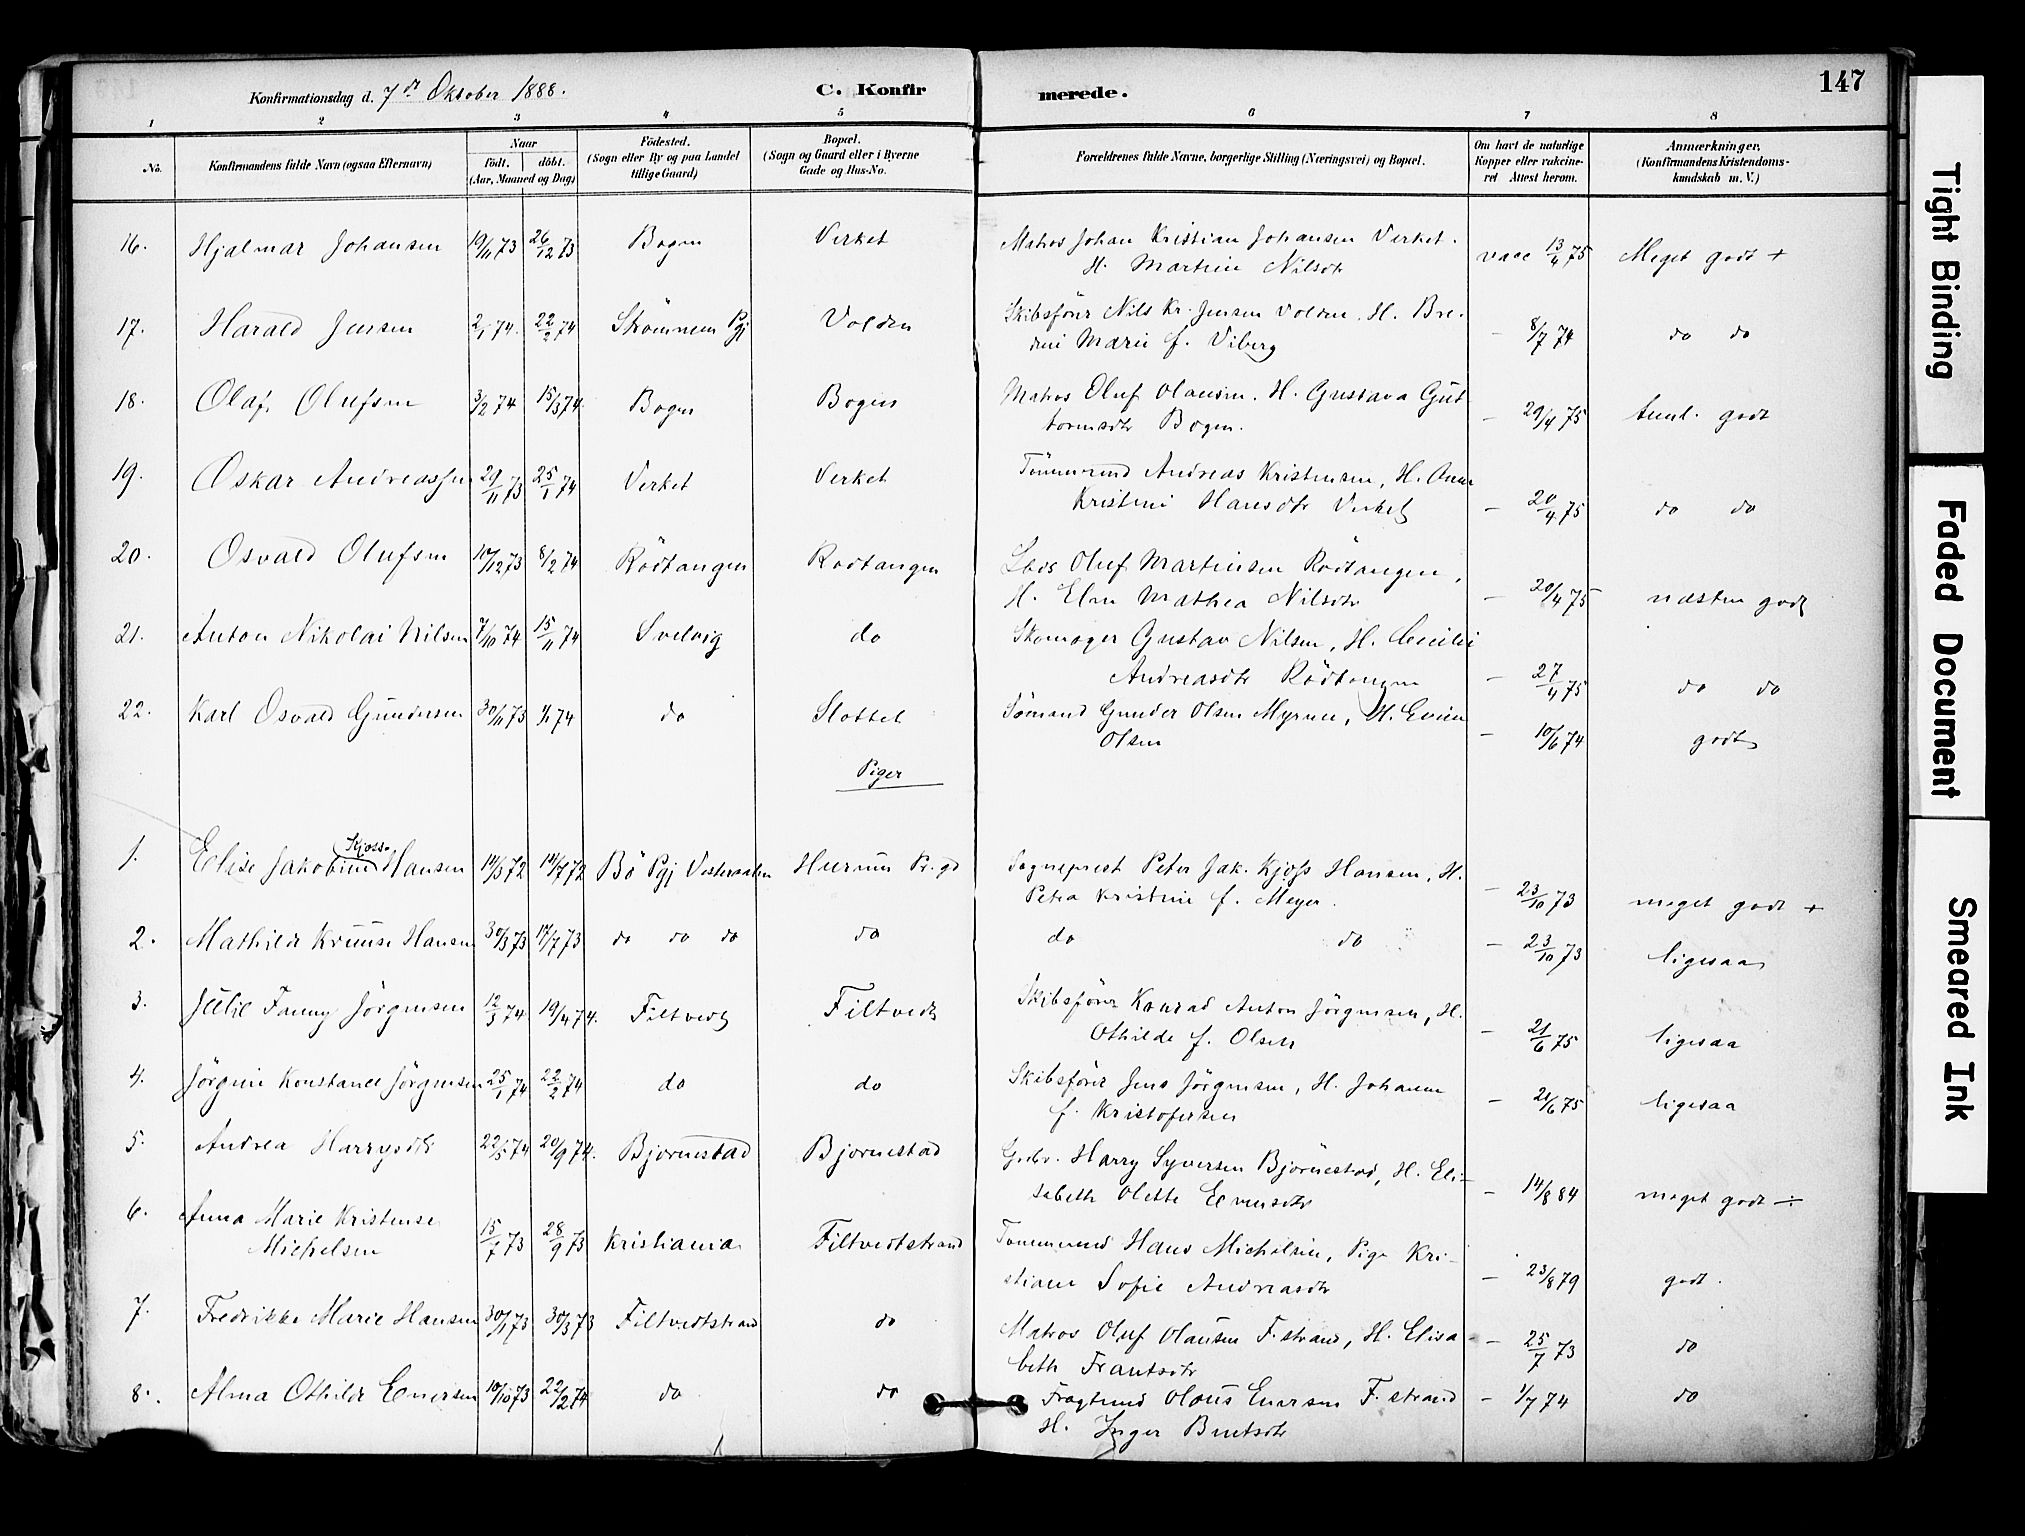 Konfirmationsdag d. 7de Oktober 1888.
C. Konfir
merede.
147
1 2 3 4 5 6 7 8
No.
Konfirmandens fulde Navn (ogsaa Efternavn)
Naar
født. døbt.
(Aar, Maaned og Dag)
Fødested.
(Sogn eller By og paa Landet
tillige Gaard)
Bopæl.
(Sogn og Gaard eller i Byerne
Gade og Hus-No.
Forældrenes fulde Navne, borgerlige Stilling (Næringsvei) og Bopæl.
Om havt de naturlige
Kopper eller vakcine-
ret Attest herom.
Anmærkninger.
(Konfirmandens Kristendoms-
kundskab m. V.)
16. Hjalmar Johansen 19/11 73 26/12 73 Bogen Verket Matros Johan Kristian Johansen Verket. vacc 13/4 75 Meget godt +
H. Martine Nilsdtr
17. Harald Jensen 2/1 74. 22/2 74 Strömmen Pgj Volden Skibsförer Nils Kr. Jensen Volden. H. Bre-
dine Marie f. Viberg – 8/7 74 do do
18. Olaf Olufsen 3/2 74 15/3 74 Bogen Bogen Matros Oluf Olausen. H. Gustava Gut
tormsdtr Bogen. – 29/4 75 teml. godt
19. Oskar Andreassen 29/11 73 25/1 74 Verket Verket Tömmermd Andreas Kristensen, H. Anne
Kristine Hansdtr Verket – 20/4 75 do do
20. Osvald Olufsen 10/12 73 8/2 74 Rödtangen Rödtangen Lods Oluf Martinsen Rödtangen,
H. Elen Mathea Nilsdtr – 20/4 75 næsten godt
21. Anton Nikolai Nilsen 7/10 74 15/11 74 Svelvig do Skomager Gustav Nilsen, H. Cecilie
Andreasdtr Rödtangen – 27/4 75 do do
22. Karl Osvald Gundersen 30/11 73 1/1 74 do Slottet Sömand Gunder Olsen Myrene, H. Evine
Olsen – 10/6 74 godt
Piger
1. Elise Jakobine Kjoss Hansen 14/3 72 14/7 72 Bö Pgj Vesteraalen Hurum Pr.gd Sogneprest Peter Jak. Kjoss Hansen, H.
Petra Kristine f. Meyer. – 23/10 73 meget godt +
2. Mathilde Kruuse Hansen 30/3 73 17/7 73 do do do do do do – 23/10 73 ligesaa
3. Julie Fanny Jörgensen 12/3 74 19/4 74. Filtvedt Filtvedt Skibsförer Konrad Anton Jörgensen, H.
Othilde f. Olsen – 21/6 75 ligesaa
4. Jörgine Konstance Jörgensen 25/1 74 22/2 74 do do Skibsförer Jens Jörgensen, H. Johanne
f. Kristofersen – 21/6 75 ligesaa
5. Andrea Harrysdtr 22/5 74 20/9 74. Bjornestad Bjornestad Grdbr. Harry Syversen Björnestad, H. Eli-
sabeth Olette Evensdtr – 14/8 84 meget godt ÷
6. Anna Marie Kristense
Michelsen 15/7 73 28/9 73 Kristiania Filtvedtstrand Tömmermd Hans Michelsen, Pige Kri-
stiane Sofie Andreasdtr – 23/8 79 godt.
7. Fredrikke Marie Hansen 30/1 73 30/3 73 Filtvedtstrand do Matros Oluf Olausen F.strand, H. Elisa-
beth Frantsdtr – 25/7 73 do
8. Alma Othilde Enersen 10/10 73 22/2 74 do do Fragtmd Olaus Enersen F.strand – 1/7 74 do
H. Inger Berntsdtr
Tight Binding
Faded Document
Smeared Ink